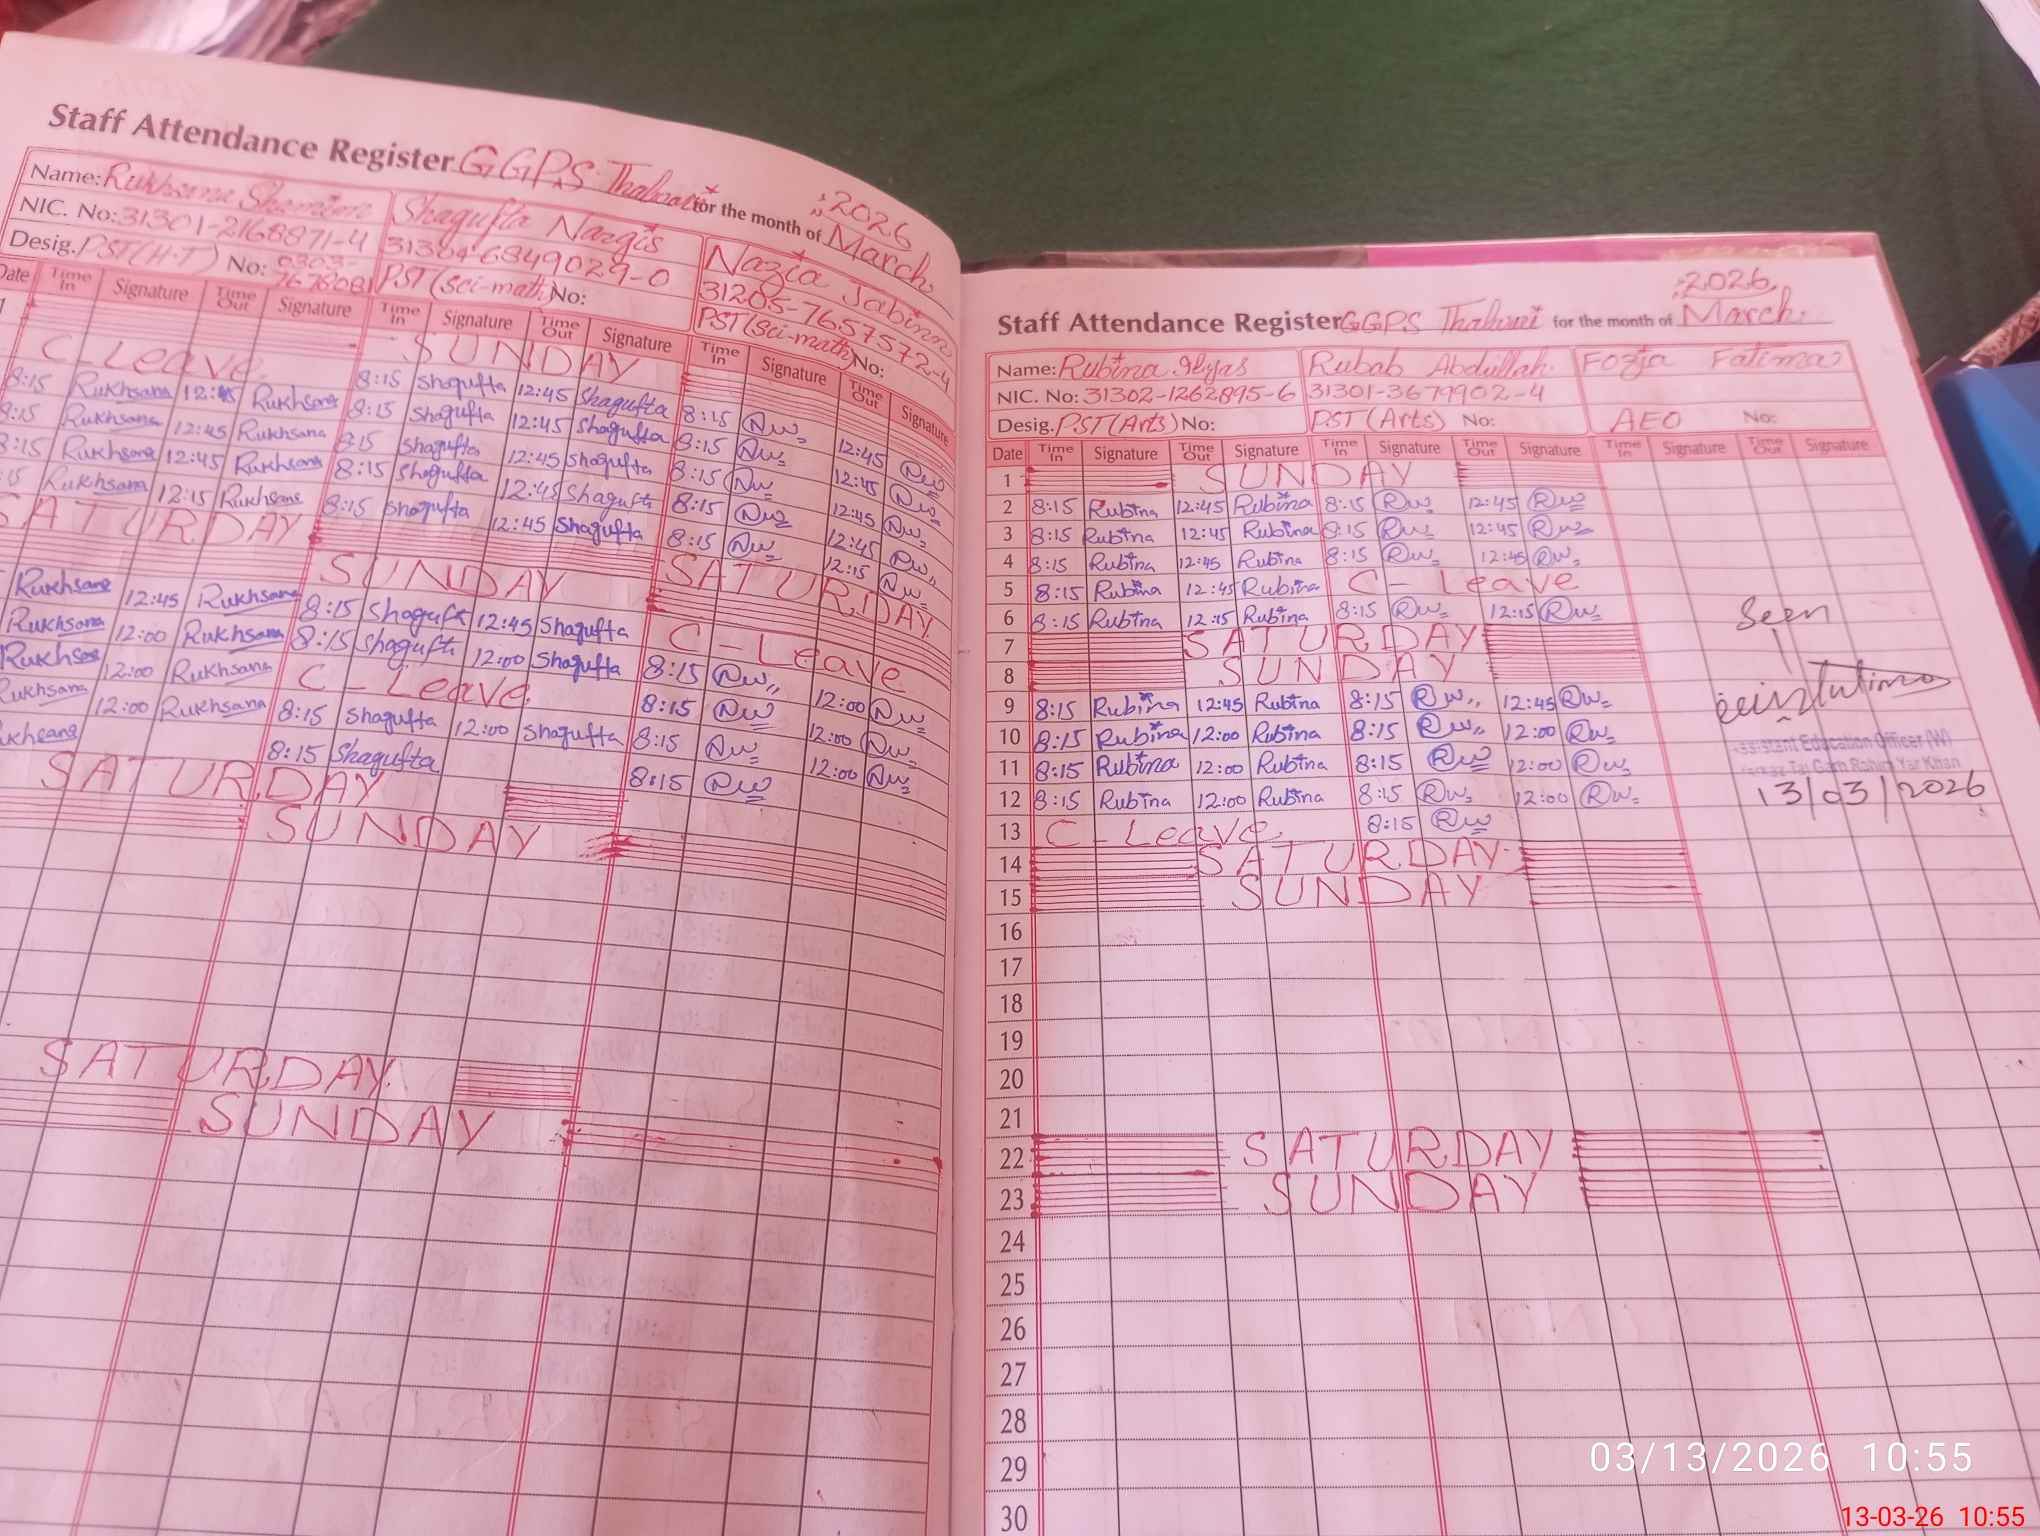 Staff Attendance Register GGPS Thalwari for the month of March, 2026
Name: Rukhsana Shamim Shagufta Nargis Nazia Jabinn
NIC. No: 31301-2168871-4 31304-6849029-0 31205-7657572-4
Desig. PST (H.T) No: 0303- PST (sci-math) No: PST (sci-math) No:
Date Time In Signature Time Out Signature Time In Signature Time Out Signature Time In Signature Time Out Signature
1 SUNDAY
C-Leave 8:15 Shagufta 12:45 Shagufta 8:15 Nw 12:45 Nw
8:15 Rukhsana 12:45 Rukhsana 8:15 Shagufta 12:45 Shagufta 8:15 Nw 12:45 Nw
8:15 Rukhsana 12:45 Rukhsana 8:15 Shagufta 12:45 Shagufta 8:15 Nw 12:45 Nw
8:15 Rukhsana 12:45 Rukhsana 8:15 Shagufta 12:45 Shagufta 8:15 Nw 12:45 Nw
:15 Rukhsana 12:15 Rukhsana 8:15 Shagufta 12:45 Shagufta 8:15 Nw 12:15 Nw
SATURDAY SATURDAY
SUNDAY
Rukhsana 12:45 Rukhsana 8:15 Shagufta 12:45 Shagufta C-Leave
Rukhsana 12:00 Rukhsana 8:15 Shagufta 12:00 Shagufta 8:15 Nw 12:00 Nw
Rukhsana 12:00 Rukhsana C-Leave 8:15 Nw 12:00 Nw
Rukhsana 12:00 Rukhsana 8:15 Shagufta 12:00 Shagufta 8:15 Nw 12:00 Nw
ukhsana 8:15 Shagufta 8:15 Nw
SATURDAY
SUNDAY
SATURDAY
SUNDAY
Staff Attendance Register GGPS Thalwari for the month of March, 2026
Name: Rubina Ilyas Rubab Abdullah Fozia Fatima
NIC. No: 31302-1262895-6 31301-3679902-4
Desig. PST (Arts) No: PST (Arts) No: AEO No:
Date Time In Signature Time Out Signature Time In Signature Time Out Signature Time In Signature Time Out Signature
1 SUNDAY
2 8:15 Rubina 12:45 Rubina 8:15 Rw 12:45 Rw
3 8:15 Rubina 12:45 Rubina 8:15 Rw 12:45 Rw
4 8:15 Rubina 12:45 Rubina 8:15 Rw 12:45 Rw
5 8:15 Rubina 12:45 Rubina C-Leave
6 8:15 Rubina 12:15 Rubina 8:15 Rw 12:15 Rw
Seen
7 SATURDAY
8 SUNDAY
9 8:15 Rubina 12:45 Rubina 8:15 Rw 12:45 Rw
10 8:15 Rubina 12:00 Rubina 8:15 Rw 12:00 Rw
Assistant Education Officer (W)
11 8:15 Rubina 12:00 Rubina 8:15 Rw 12:00 Rw
Taj Garh Rahim Yar Khan
12 8:15 Rubina 12:00 Rubina 8:15 Rw 12:00 Rw
13/03/2026
13 C-Leave 8:15 Rw
14 SATURDAY
15 SUNDAY
16
17
18
19
20
21
22 SATURDAY
23 SUNDAY
24
25
26
27
28
29
30
03/13/2026 10:55
13-03-26 10:55